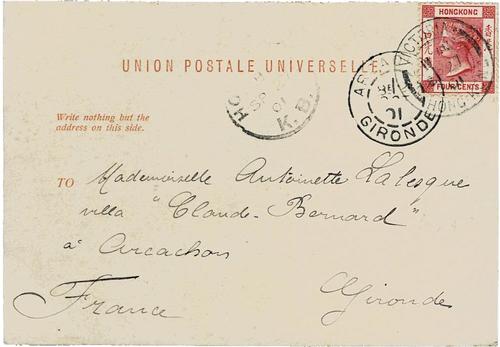 HONGKONG
FOUR CENTS
VICTORIA
HONG KONG
UNION POSTALE UNIVERSELLE.
K.B.
01
GIRONDE
Write nothing but the
address on this side.
TO Mademoiselle Antoinette Lalesque
villa "Claude-Bernard"
à Arcachon
France Gironde